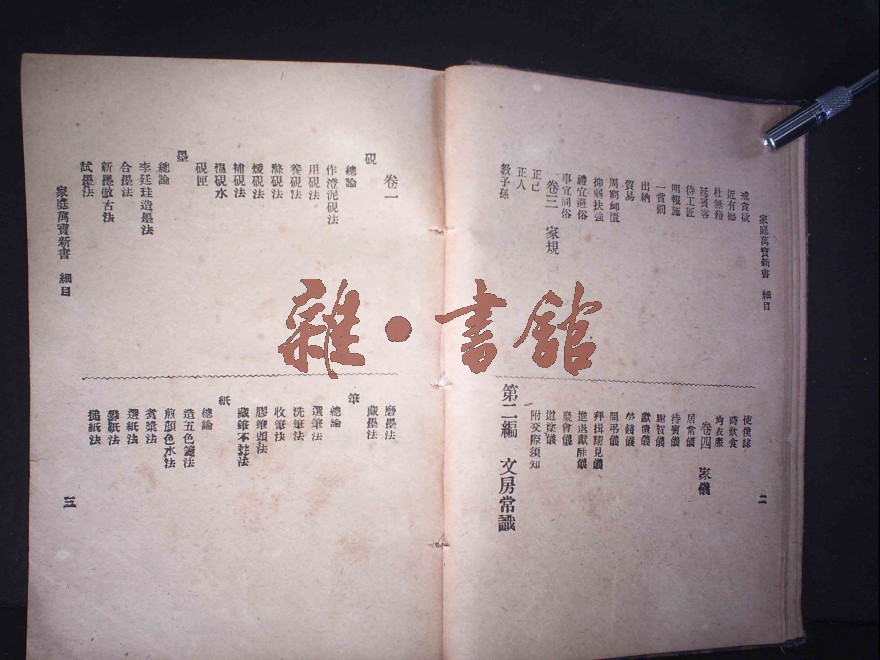 家庭萬寶新書 細目
二
戒貪欲
近有德
杜無藉
延賓客
待工匠
明報施
一賞罰
出納
貿易
周窮卹匱
抑弱扶強
禮宜避俗
事宜同俗
卷三 家規
正己
正人
教子孫
使僕隸
時飲食
均衣服
卷四 家儀
居常儀
待賓儀
謝賀儀
獻歲儀
勞餞儀
問弔儀
拜揖請見儀
進退獻酬儀
聚會儀
道塗儀
附交際須知
第二編 文房常識
卷一
硯
總論
作澄泥硯法
用硯法
養硯法
滌硯法
煖硯法
補硯法
溫硯水
硯匣
墨
總論
李廷珪造墨法
合墨法
新墨倣古法
試墨法
磨墨法
藏墨法
筆
總論
選筆法
洗筆法
收筆法
膠筆頭法
藏筆不蛀法
紙
總論
造五色箋法
煎顏色水法
煮漿法
選紙法
染紙法
搥紙法
家庭萬寶新書 細目
三
雜·書館